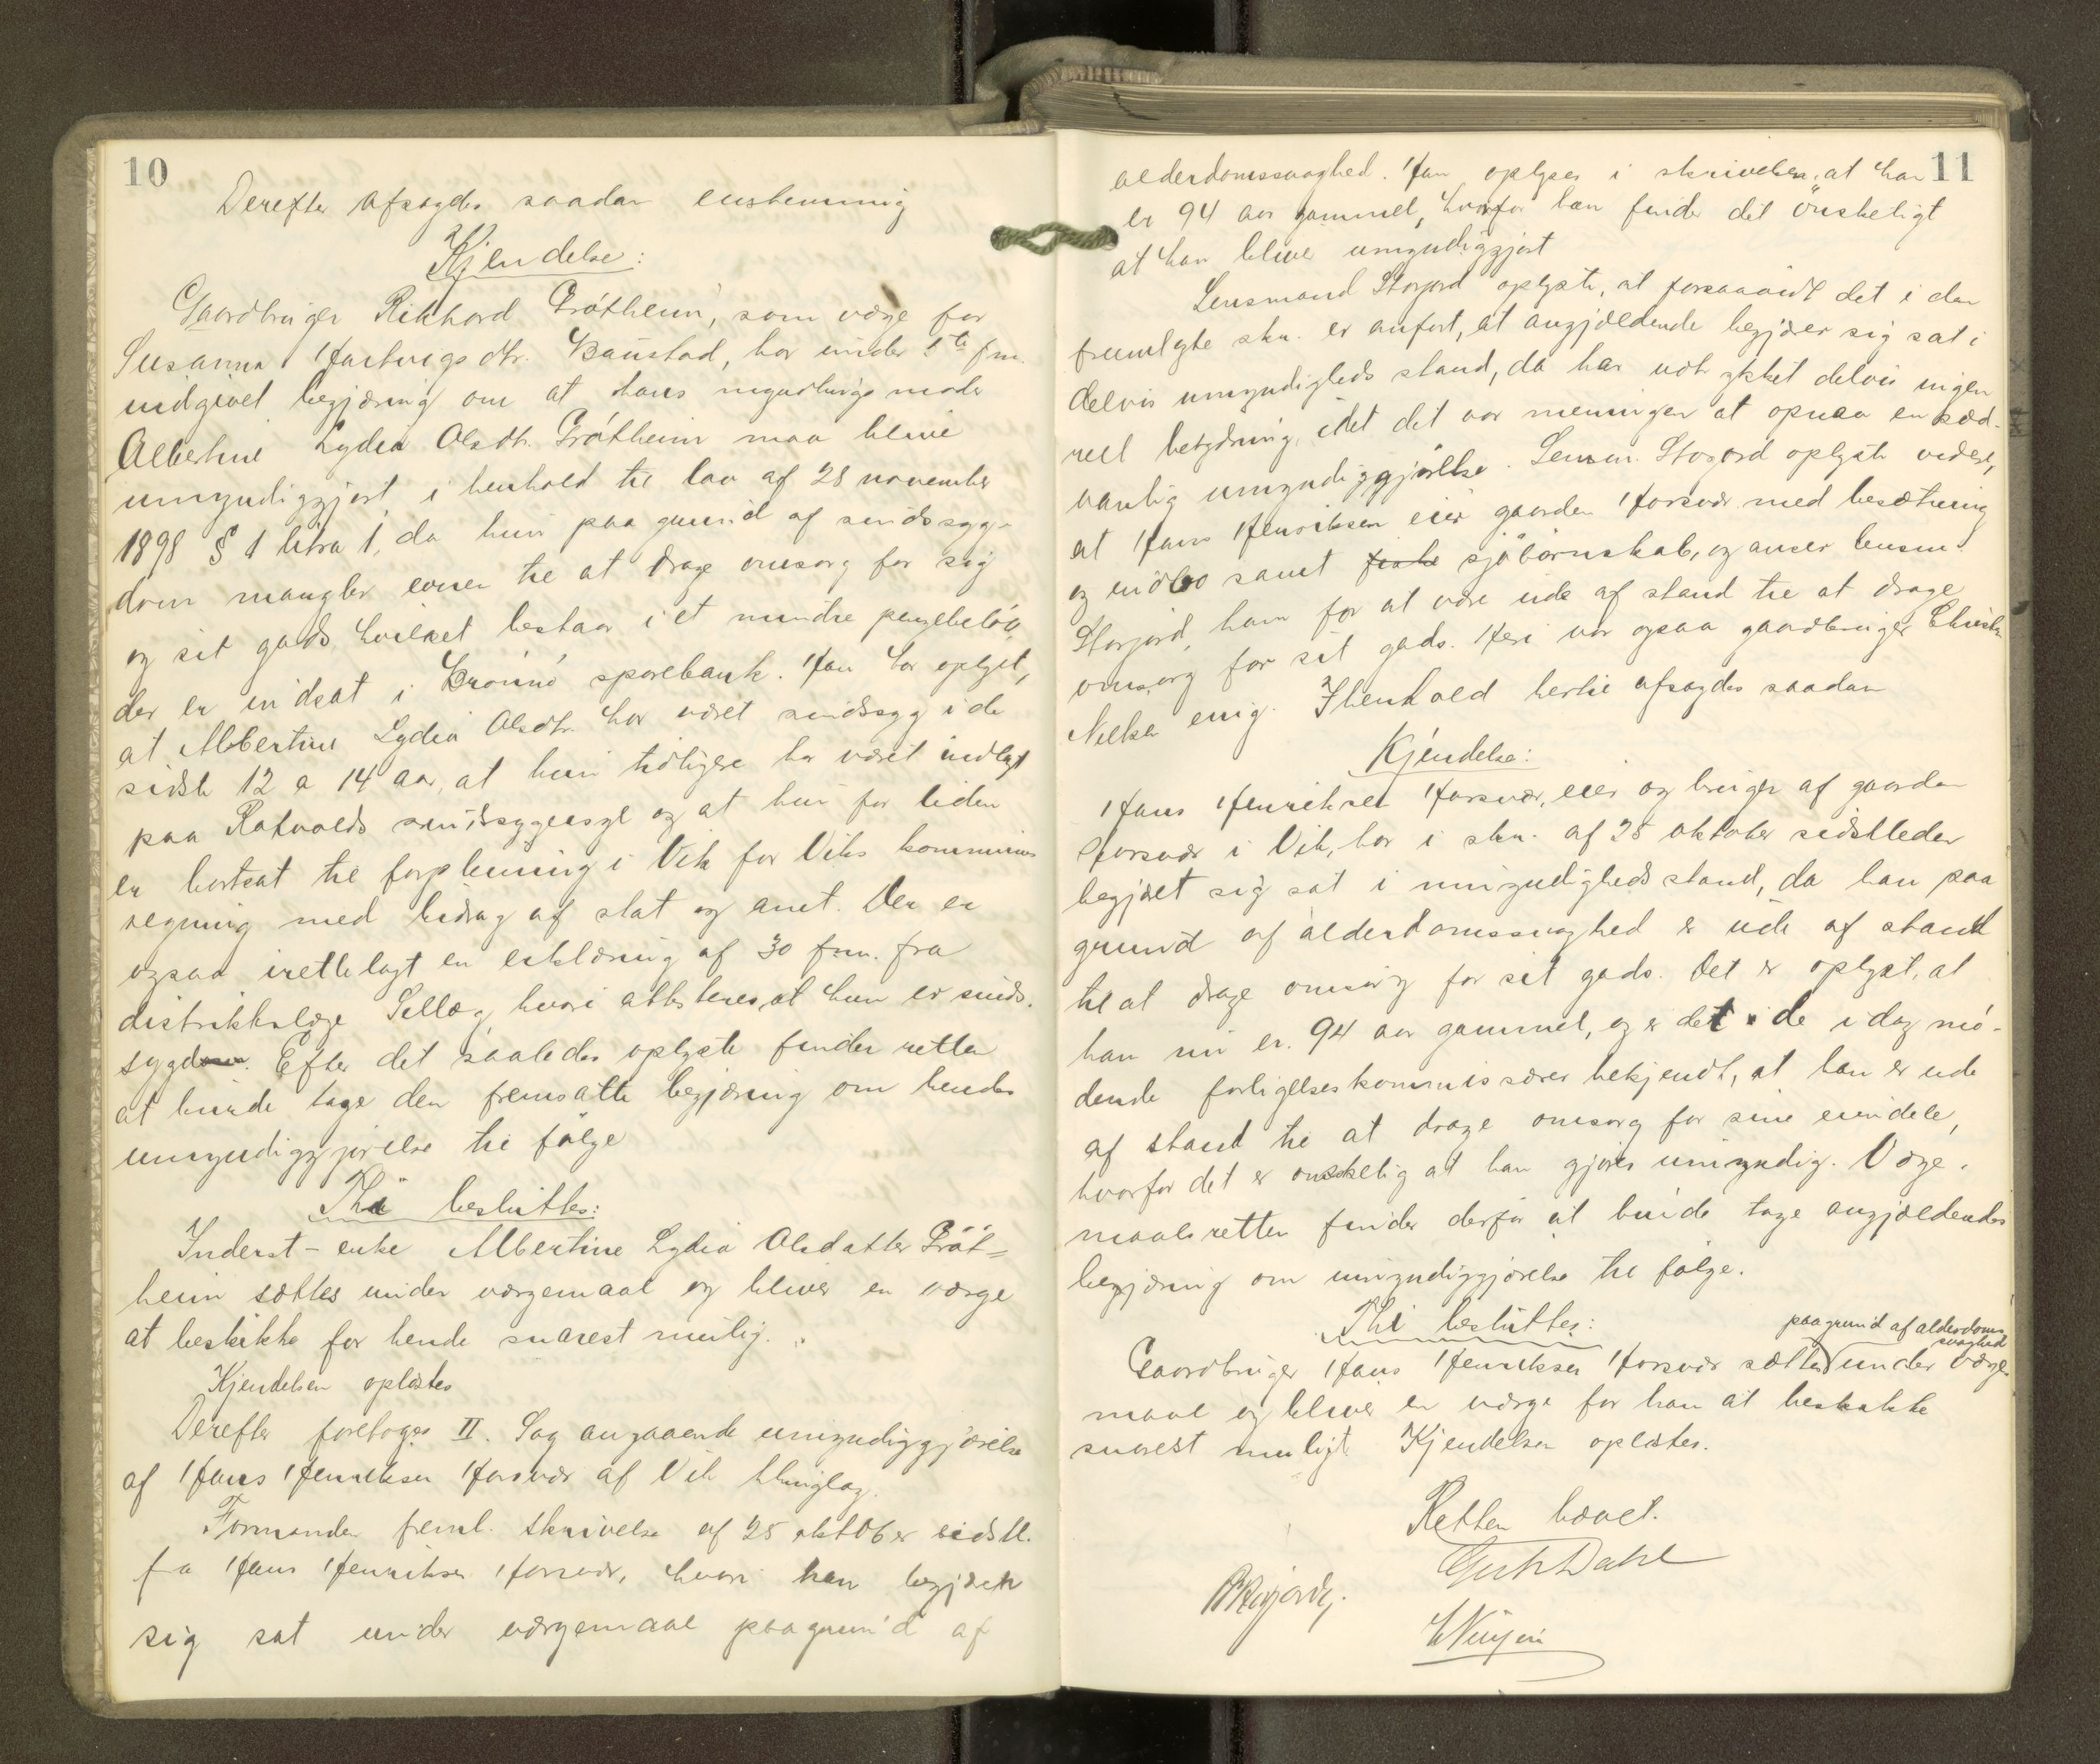 10
Derefter afsagdes saadan enstemmig
Kjendelse:
Gaardbruger Rikhard Gråtheim, som værge for
Susanna Hartvigsdtr. Baustad, har under 5te fm.
indgivet begjæring om at hans myndlings moder
Albertine Lydia Olsdtr. Gråtheim maa blive
umyndiggjort i henhold til lov af 28 november
1898 § 1 litra 1, da hun paa grund af sindssyg-
dom mangler evnen til at drage omsorg for sig
og sit gods, hvilket bestaar i et mindre pengebeløb,
der er indsat i Brønnø sparebank. Han har oplyst,
at Albertine Lydia Olsdtr. har været sindssyg i de
sidste 12 a 14 aar, at hun tidligere har været indlagt
paa Rotvolds sindssygeasyl og at hun for tiden
er bortsat til forpleining i Vik for Viks kommunes
regning med bidrag af stat og amt. Der er
ogsaa irettelagt en erklæring af 30 fm. fra
distriktslæge Selläg, hvori attesteres, at hun er sinds-
syg. Efter det saaledes oplyste finder retten
at burde tage den fremsatte begjæring om hendes
umyndiggjørelse til følge
Thi besluttes:
Inderst-enke Albertine Lydia Olsdatter Gråt-
heim sættes under værgemaal og bliver en værge
at beskikke for hende snarest mulig.
Kjendelsen oplæstes
Derefter foretoges II. Sag angaaende umyndiggjørelse
af Hans Henriksen Horsvær af Vik thinglag.
Formanden freml. skrivelse af 25 oktober sidstl.
fra Hans Henriksen Horsvær, hvori han begjæres
sig sat under værgemaal paa grund af
11
alderdomssvaghed. Han oplyser i skrivelsen, at han
er 94 aar gammel, hvorfor han finder det ønskeligt
at han blive umyndiggjort
Lensmand Storjord oplyste, at forsaavidt det i den
fremlagte skr. er anført, at angjældende begjærer sig sat i
delvis umyndigheds stand, da har udtrykket delvis ingen
reel betydning, idet det var meningen at opnaa en sæd-
vanlig umyndiggjørelse. Lensm. Storjord oplyste videre,
at Hans Henriksen eier gaarden Horsvær med besætning
og indbo samt fiske sjøbornskab, og anser lensm.
Storjord, ham for at være ude af stand til at drage
omsorg for sit gods. Heri var ogsaa gaardbruger Christn
Nielsen enig. I henhold hertil afsagdes saadan
Kjendelse:
Hans Henriksen Horsvær, eier og bruger af gaarden
Horsvær i Vik, har i skr. af 25 oktober sidstleden
begjæret sig sat i umyndigheds stand, da han paa
grund af alderdomssvaghed er ude af stand
til at drage omsorg for sit gods. Det er oplyst, at
han nu er 94 aar gammel, og er det de i dag mø-
dende forligelseskommissærer bekjendt, at han er ude
af stand til at drage omsorg for sine eiendele,
hvorfor det er ønskelig at han gjøres umyndig. Værge-
maalsretten finder derfor at burde tage angjældendes
begjæring om umyndiggjørelse til følge.
Thi besluttes:
paa grund af alderdoms
svaghed
Gaardbruger Hans Henriksen Horsvær sættes under værge-
maal og bliver en værge for han at beskikke
snarest muligt. Kjendelsen oplæstes.
Retten hævet.
Dahl